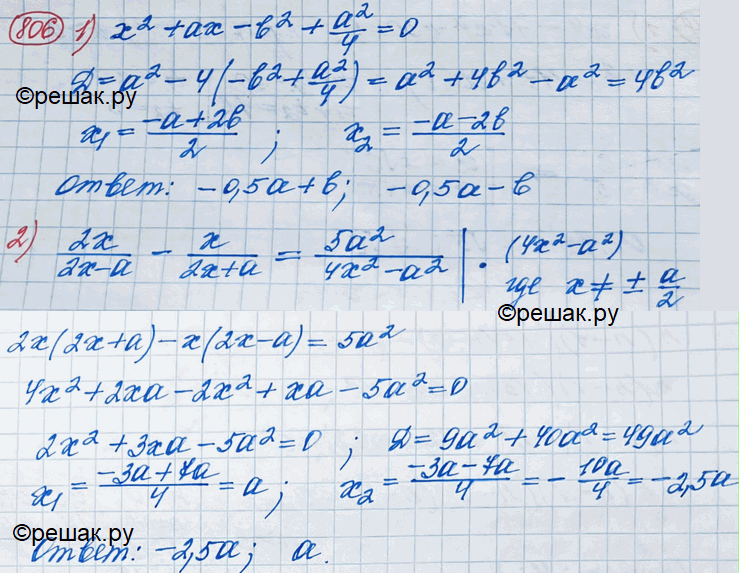 806 1) x² + ax − b² + a²/4 = 0
D = a² − 4(−b² + a²/4) = a² + 4b² − a² = 4b²
©решак.ру
x₁ = (−a + 2b)/2 ; x₂ = (−a − 2b)/2
Ответ: −0,5a + b; −0,5a − b
2) 2x/(2x−a) − x/(2x+a) = 5a²/(4x²−a²) | · (4x²−a²)
где x ≠ ± a/2
©решак.ру
2x(2x+a) − x(2x−a) = 5a²
4x² + 2xa − 2x² + xa − 5a² = 0
2x² + 3xa − 5a² = 0 ; D = 9a² + 40a² = 49a²
x₁ = (−3a + 7a)/4 = a ; x₂ = (−3a − 7a)/4 = −10a/4 = −2,5a
©решак.ру
Ответ: −2,5a; a.